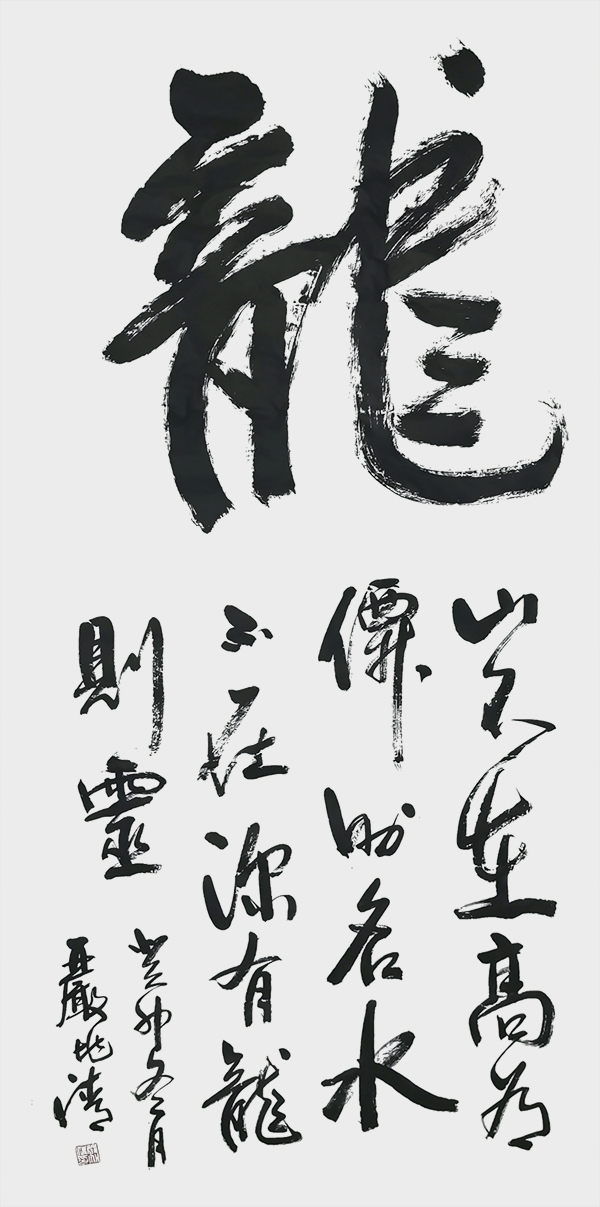 龍
山不在高有
僊則名水
不在深有龍
則靈
癸卯冬月
嚴兆清